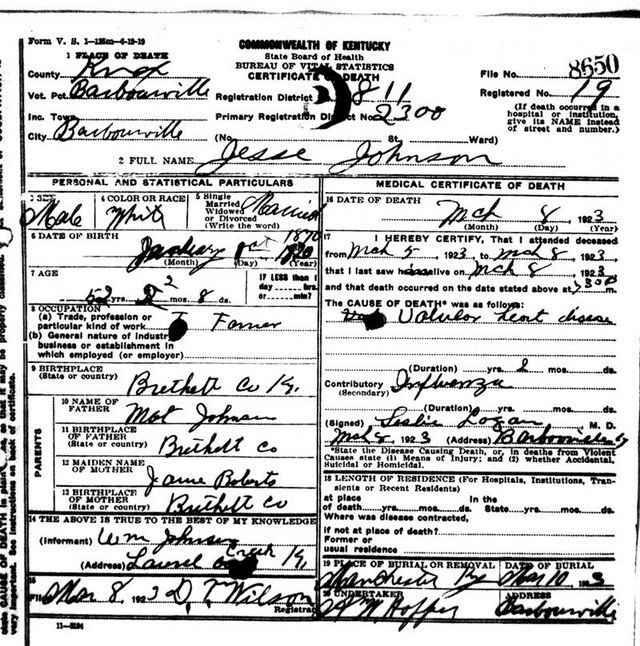 Form V. S. 1-125m-4-19-19
COMMONWEALTH OF KENTUCKY
State Board of Health
BUREAU OF VITAL STATISTICS
CERTIFICATE OF DEATH
1 PLACE OF DEATH
County Knox
Vot. Pct. Barbourville
Inc. Town
City Barbourville
Registration District 811
Primary Registration District No. 2300
(No. St. Ward)
File No. 8650
Registered No. 19
(If death occurred in a
hospital or institution,
give its NAME instead
of street and number.)
2 FULL NAME Jesse Johnson
PERSONAL AND STATISTICAL PARTICULARS
3 SEX Male
4 COLOR OR RACE White
5 Single
Married
Widowed
or Divorced
(Write the word) Married
6 DATE OF BIRTH
(Month) (Day) (Year)
7 AGE
52 yrs. 2 mos. 8 ds.
IF LESS than 1
day hrs.
or min?
8 OCCUPATION
(a) Trade, profession or
particular kind of work Farmer
(b) General nature of industry
business or establishment in
which employed (or employer)
9 BIRTHPLACE
(State or country) Brethett Co Ky.
PARENTS
10 NAME OF
FATHER Mat Johnson
11 BIRTHPLACE
OF FATHER
(State or country) Brethett Co
12 MAIDEN NAME
OF MOTHER Jane Roberts
13 BIRTHPLACE
OF MOTHER
(State or country) Brethett Co
14 THE ABOVE IS TRUE TO THE BEST OF MY KNOWLEDGE
(Informant) Wm Johnson
(Address) Laurel Creek Ky.
15
Filed Mar 8, 1923 D. T. Wilson
Registrar
11-3184
MEDICAL CERTIFICATE OF DEATH
16 DATE OF DEATH
Mch 8, 1923
(Month) (Day) (Year)
17 I HEREBY CERTIFY, That I attended deceased
from Mch 5 1923, to Mch 8, 1923
that I last saw him alive on Mch 8, 1923
and that death occurred on the date stated above at
The CAUSE OF DEATH* was as follows:
Valvular heart disease
(Duration) yrs. 2 mos. ds.
Contributory Influenza
(Secondary)
(Duration) yrs. mos. ds.
(Signed) Leslie Logan M. D.
Mch 8, 1923 (Address) Barbourville Ky
*State the Disease Causing Death, or, in deaths from Violent
Causes state (1) Means of Injury; and (2) whether Accidental,
Suicidal or Homicidal.
18 LENGTH OF RESIDENCE (For Hospitals, Institutions, Tran-
sients or Recent Residents)
at place In the
of death yrs. mos. ds. State yrs. mos. ds.
Where was disease contracted,
if not at place of death?
Former or
usual residence
19 PLACE OF BURIAL OR REMOVAL DATE OF BURIAL
Manchester Ky Mar 10 1923
20 UNDERTAKER ADDRESS
Hopper Barbourville
state CAUSE OF DEATH in plain
very important. See instructions on back of certificate.
so that it may be properly classified.